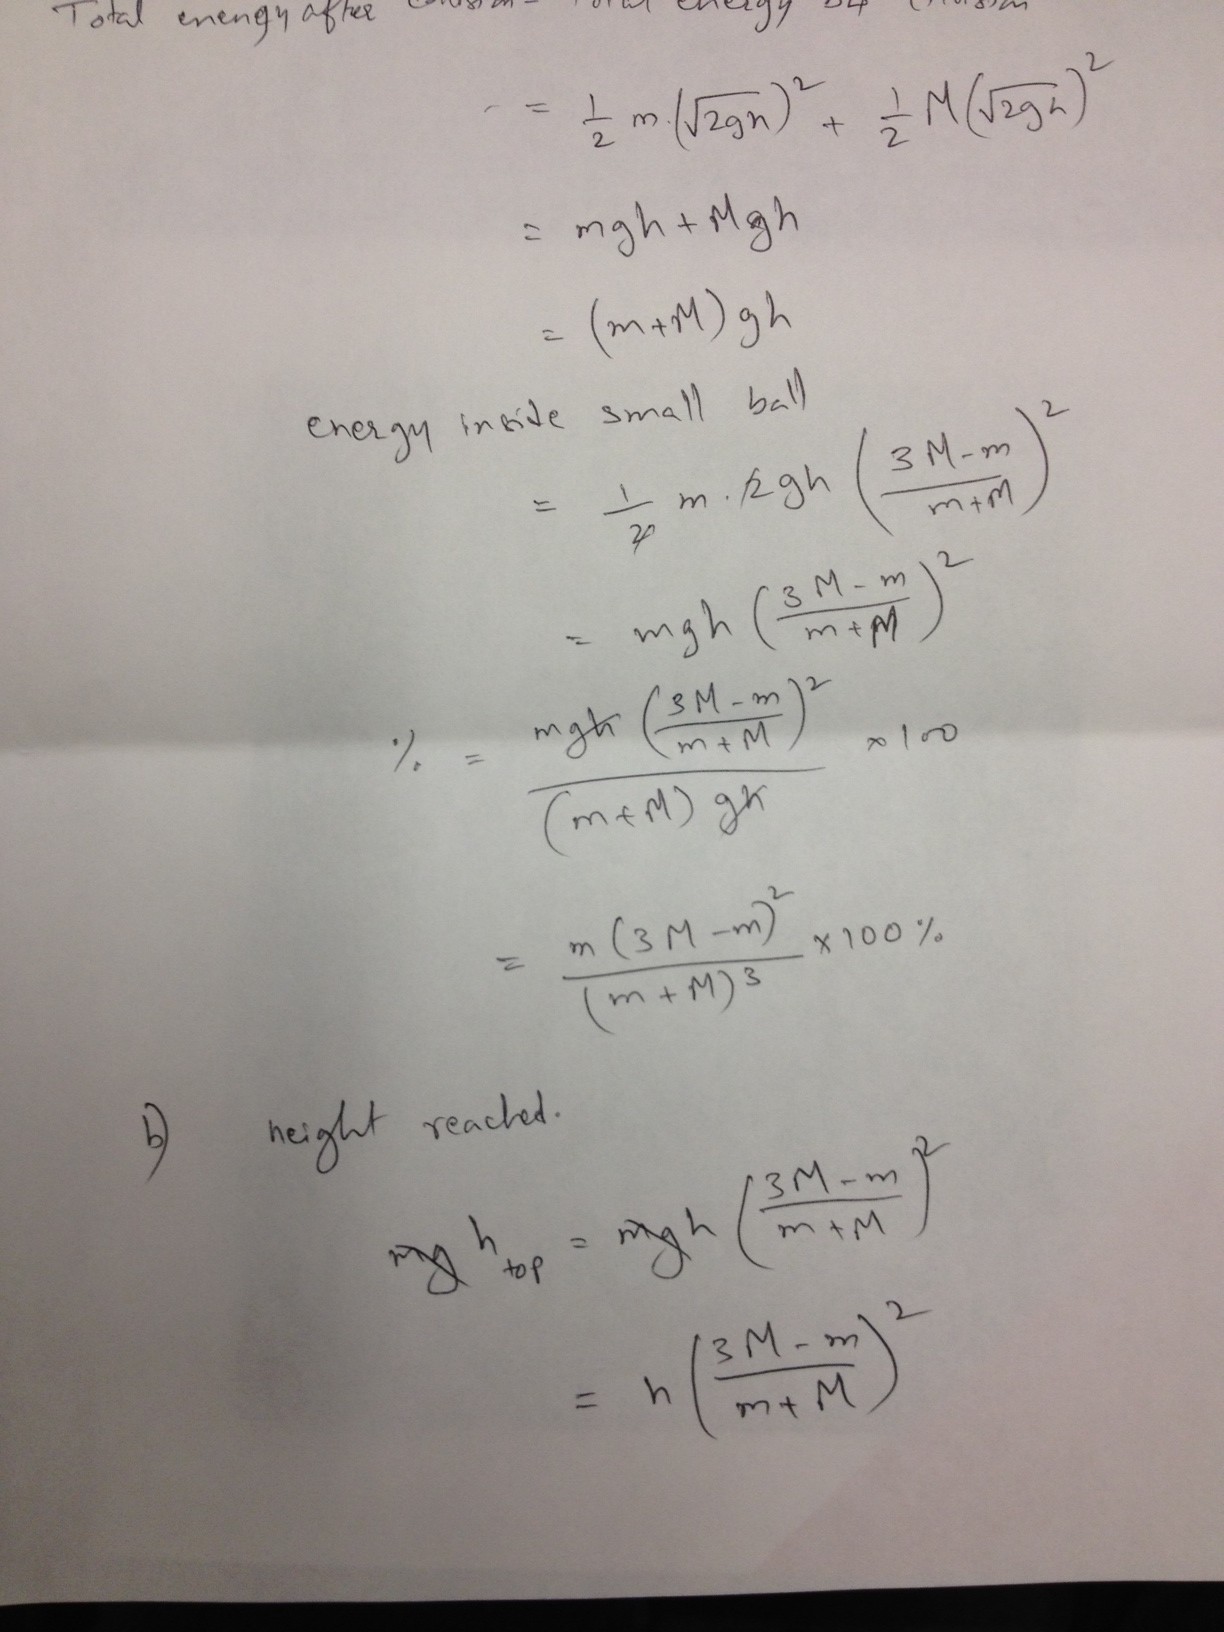 Total energy after collision = Total energy b4 collision
= 1/2 m.(√2gh)² + 1/2 M(√2gh)²
= mgh + Mgh
= (m+M) gh
energy inside small ball
= 1/2 m . 2gh ((3M-m)/(m+M))²
= mgh ((3M-m)/(m+M))²
% = mgh ((3M-m)/(m+M))² / (m+M) gh × 100
= m(3M-m)²/(m+M)³ × 100 %
b) height reached.
mg h top = mgh ((3M-m)/(m+M))²
= h((3M-m)/(m+M))²